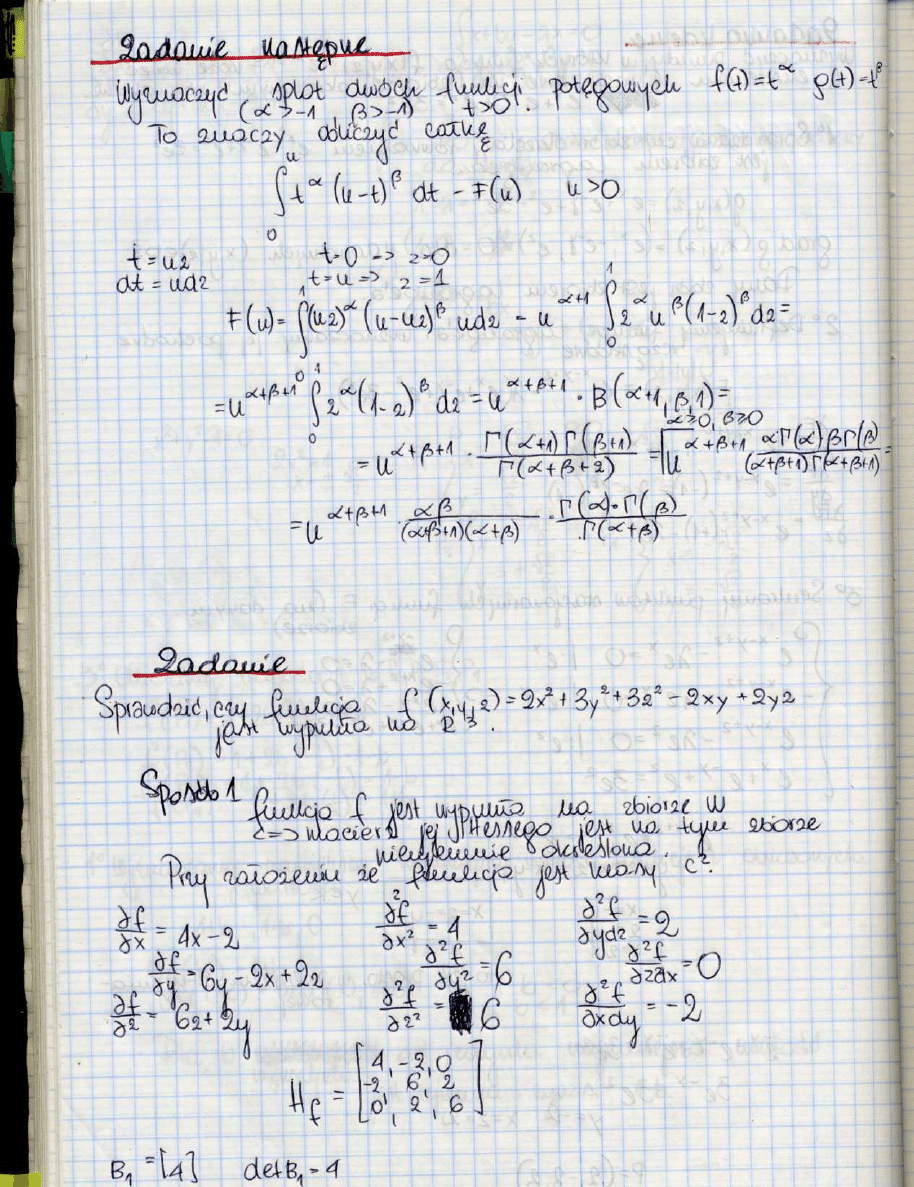 Zadanie następne
Wyznaczyć splot dwóch funkcji potęgowych f(t)=t^α g(t)=t^β
(α>-1 β>-1) t>0.
To znaczy obliczyć całkę
∫_0^u t^α (u-t)^β dt = F(u) u>0
t=uz t=0 => z=0
dt=udz t=u => z=1
F(u)= ∫_0^1 (uz)^α (u-uz)^β udz = u^{α+1} ∫_0^1 z^α u^β (1-z)^β dz=
=u^{α+β+1} ∫_0^1 z^α (1-z)^β dz = u^{α+β+1} · B(α+1, β+1)=
α≥0, β≥0
= u^{α+β+1} · Γ(α+1)Γ(β+1)/Γ(α+β+2) = u^{α+β+1} αΓ(α)βΓ(β)/(α+β+1)Γ(α+β+1) =
= u^{α+β+1} · αβ/(α+β+1)(α+β) · Γ(α)·Γ(β)/Γ(α+β)
Zadanie
Sprawdzić, czy funkcja f(x,y,z)=2x²+3y²+3z²-2xy+2yz
jest wypukła na R³.
Sposób 1
funkcja f jest wypukła na zbiorze W
<=> macierz jej Hessego jest na tym zbiorze
nieujemnie określona.
Przy założeniu że funkcja jest klasy C².
∂f/∂x = 4x-2 ∂²f/∂x² = 4 ∂²f/∂y∂z = 2
∂f/∂y = 6y-2x+2z ∂²f/∂y² = 6 ∂²f/∂z∂x = 0
∂f/∂z = 6z+2y ∂²f/∂z² = 6 ∂²f/∂x∂y = -2
H_f = [4, -2, 0
-2, 6, 2
0, 2, 6]
B₁ = [4] det B₁ = 4